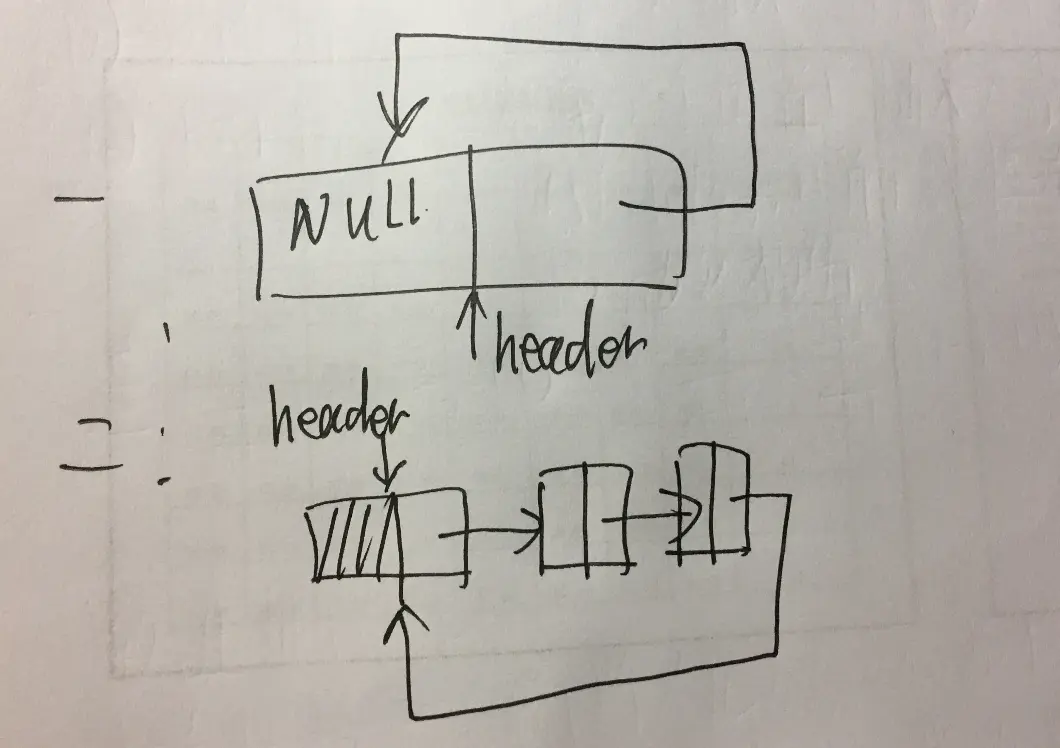 一
NULL
header
二：
header